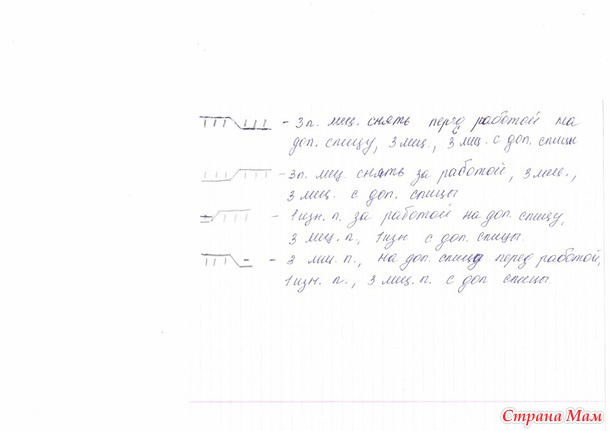 - 3п. лиц. снять перед работой на
доп. спицу, 3 лиц., 3 лиц. с доп. спицы
- 3п. лиц. снять за работой, 3 лиц.,
3 лиц. с доп. спицы
- 1 изн. п. за работой на доп. спицу,
3 лиц. п., 1 изн с доп. спицы.
- 3 лиц. п., на доп. спицу перед работой,
1 изн. п., 3 лиц. п. с доп спицы
Страна Мам